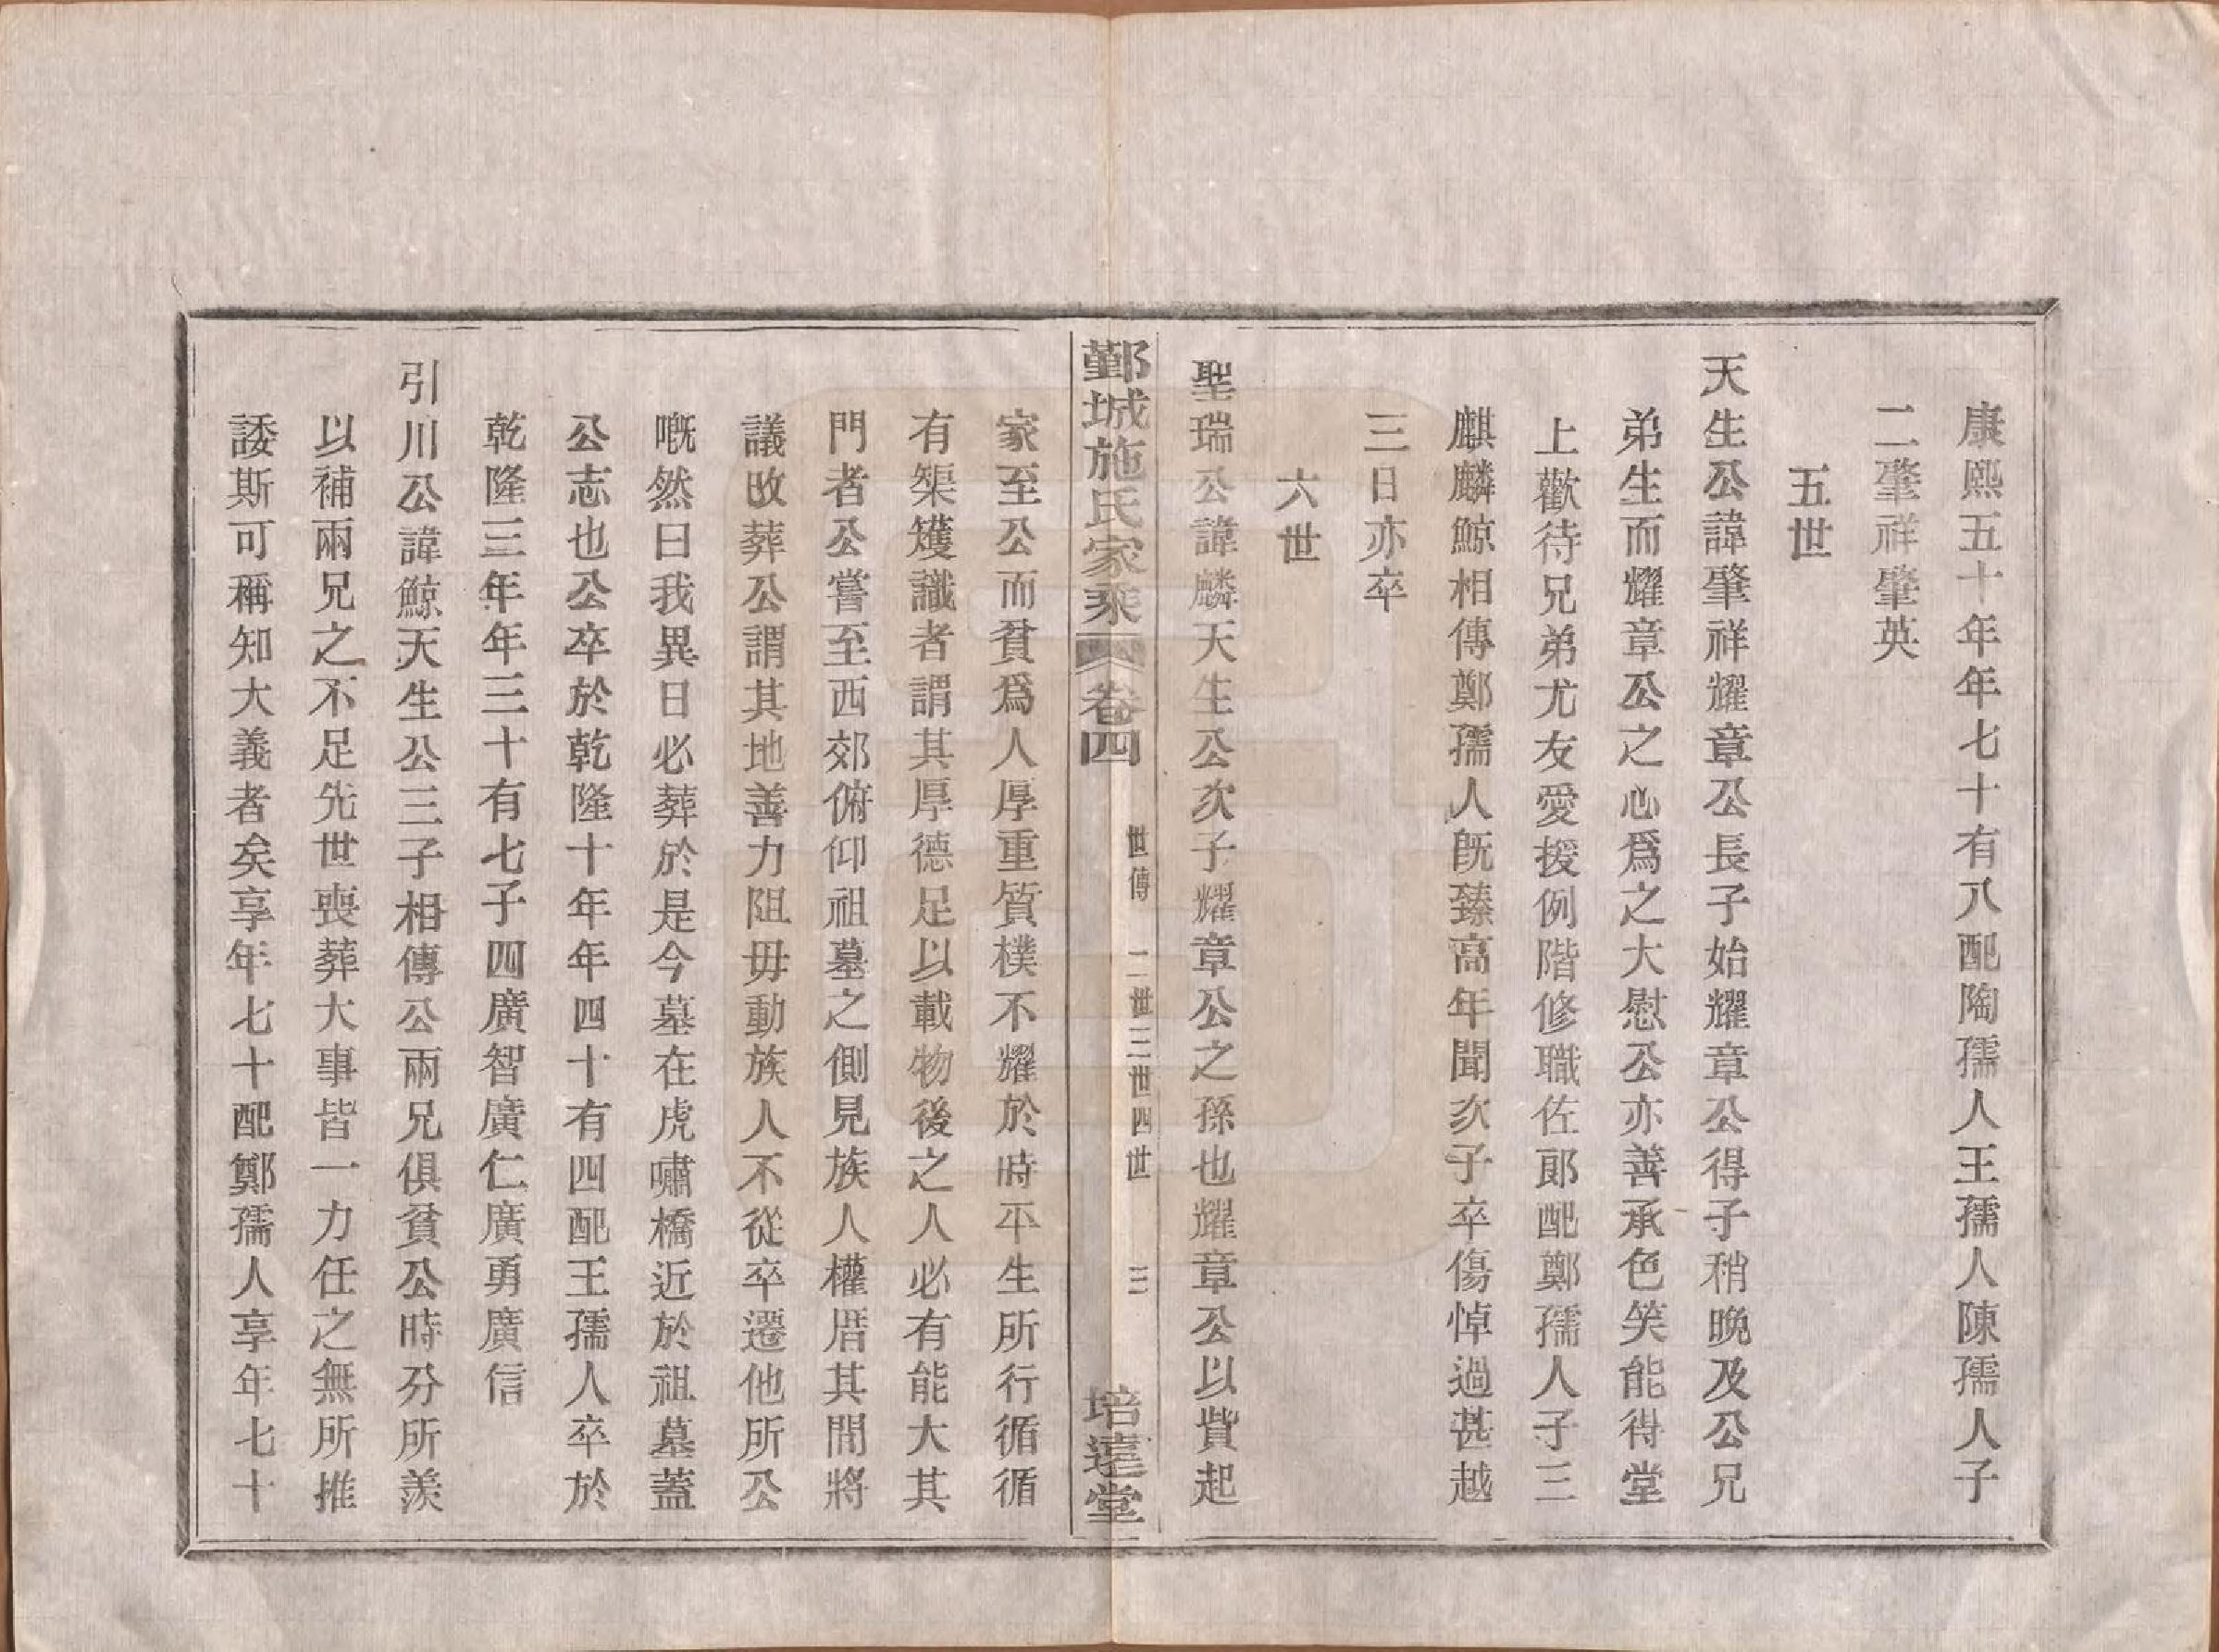 康熙五十年年七十有八配陶孺人王孺人陳孺人子
二肇祥肇英
五世
天生公諱肇祥耀章公長子始耀章公得子稍晚及公兄
弟生而耀章公之心爲之大慰公亦善承色笑能得堂
上歡待兄弟尤友愛援例階修職佐郎配鄭孺人子三
麒麟鯨相傳鄭孺人旣臻高年聞次子卒傷悼過甚越
三日亦卒
六世
聖瑞公諱麟天生公次子耀章公之孫也耀章公以貲起
鄞城施氏家乘 卷四 世傳 二世三世四世 三 培遠堂
家至公而貧爲人厚重質樸不耀於時平生所行循循
有榘矱識者謂其厚德足以載物後之人必有能大其
門者公嘗至西郊俯仰祖墓之側見族人權厝其間將
議改葬公謂其地善力阻毋動族人不從卒遷他所公
嘅然曰我異日必葬於是今墓在虎嘯橋近於祖墓蓋
公志也公卒於乾隆十年年四十有四配王孺人卒於
乾隆三年年三十有七子四廣智廣仁廣勇廣信
引川公諱鯨天生公三子相傳公兩兄俱貧公時分所羨
以補兩兄之不足先世喪葬大事皆一力任之無所推
諉斯可稱知大義者矣享年七十配鄭孺人享年七十